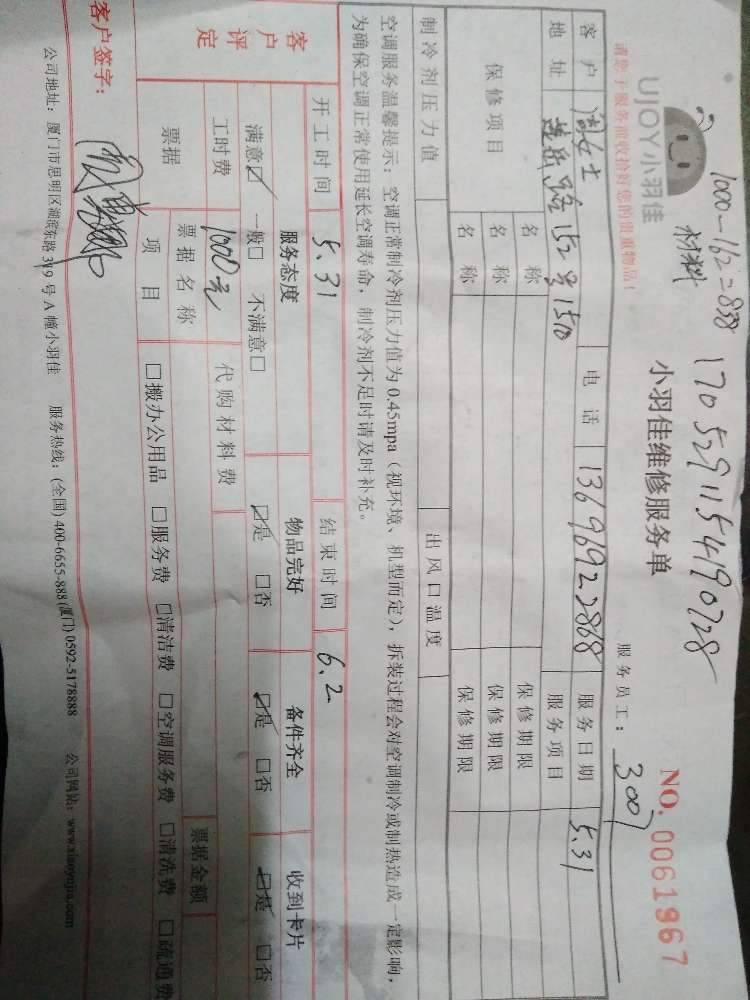 1000-162=838
材料
170529115490728
UJOY小羽佳
小羽佳维修服务单
NO. 0061967
请您于服务前收拾好您的贵重物品！
服务员工： 3007
客户 女士 电话 13696922868 服务日期 5.31
地址 莲岳路152号1510 服务项目
保修项目 名称 保修期限
名称 保修期限
名称 保修期限
制冷剂压力值 出风口温度
空调服务温馨提示：空调正常制冷剂压力值为0.45mpa（视环境、机型而定），拆装过程会对空调制冷或制热造成一定影响，
为确保空调正常使用延长空调寿命，制冷剂不足时请及时补充。
开工时间 5.31 结束时间 6.2
客户评定 服务态度 物品完好 备件齐全 收到卡片
满意☑ 一般□ 不满意□ ☑是 □否 ☑是 □否 ☑是 □否
工时费 1000元 代购材料费
票据 票据名称 票据金额
项目 □搬办公用品 □服务费 □清洁费 □空调服务费 □清洗费 □疏通费
客户签字：
公司地址：厦门市思明区湖滨东路319号A幢小羽佳 服务热线：(全国) 400-6655-888 (厦门) 0592-5178888 公司网站：www.xiaoyujia.com